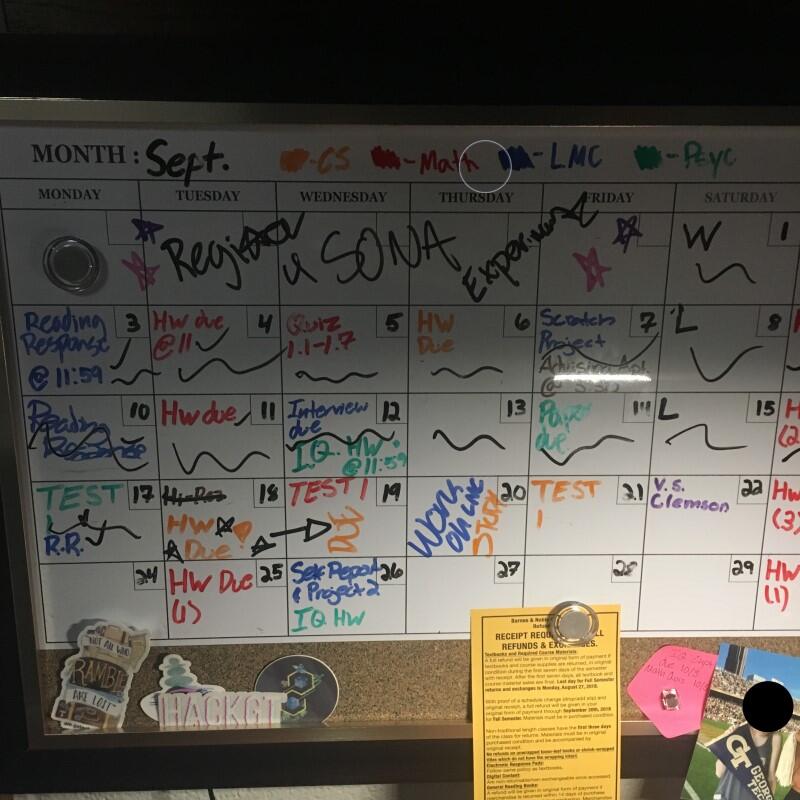 MONTH : Sept. -CS -Math -LMC -Psyc
MONDAY TUESDAY WEDNESDAY THURSDAY FRIDAY SATURDAY
Register
4 SONA
Experiments
W 1
Reading 3
Response
@ 11:59
HW due 4
@11
Quiz 5
1.1-1.7
HW 6
Due
Scratch 7
Project
Advising Apt.
L 8
Reading 10
Response
HW due 11
Interview 12
due
I.Q. HW
@11:59
13
Paper 14
due
L 15
H
(2
TEST 17
R.R.
18
HW
Due
TEST 1 19
DUE
20
Work
on LMC
STUDY
TEST 21
1
V.S. 22
Clemson
Hw
(3)
24
HW Due 25
(1)
Self Report 26
& Project 2
IQ HW
27
28
29
HW
(1)
NOT ALL WHO
RAMBLE
ARE LOST
HACKGT
Barnes & Noble
RECEIPT
REFUNDS &
Textbooks and Required Course Materials:
A full refund will be given in original form of payment if
textbooks and course supplies are returned, in original
condition during the first seven days of the semester
with receipt. After the first seven days, all textbook and
course material sales are final. Last day for Fall Semester
returns and exchanges is Monday, August 27, 2018.
With proof of a schedule change (drop/add slip) and
original receipt, a full refund will be given in your
original form of payment through
for Fall Semester. Materials must be in purchased condition.
Non-traditional length classes have the first three days
of the class for returns. Materials must be in original
purchased condition and be accompanied by
original receipt.
No refunds on unwrapped loose-leaf books or shrink-wrapped
titles which do not have the wrapping intact.
Electronic Response Pads:
Follow same policy as textbooks.
Digital Content:
Are non-returnable/non-exchangeable once accessed.
General Reading Books:
A refund will be given in original form of payment if
merchandise is returned within 14 days of purchase
due 10/5
GT
GEORGIA
TE